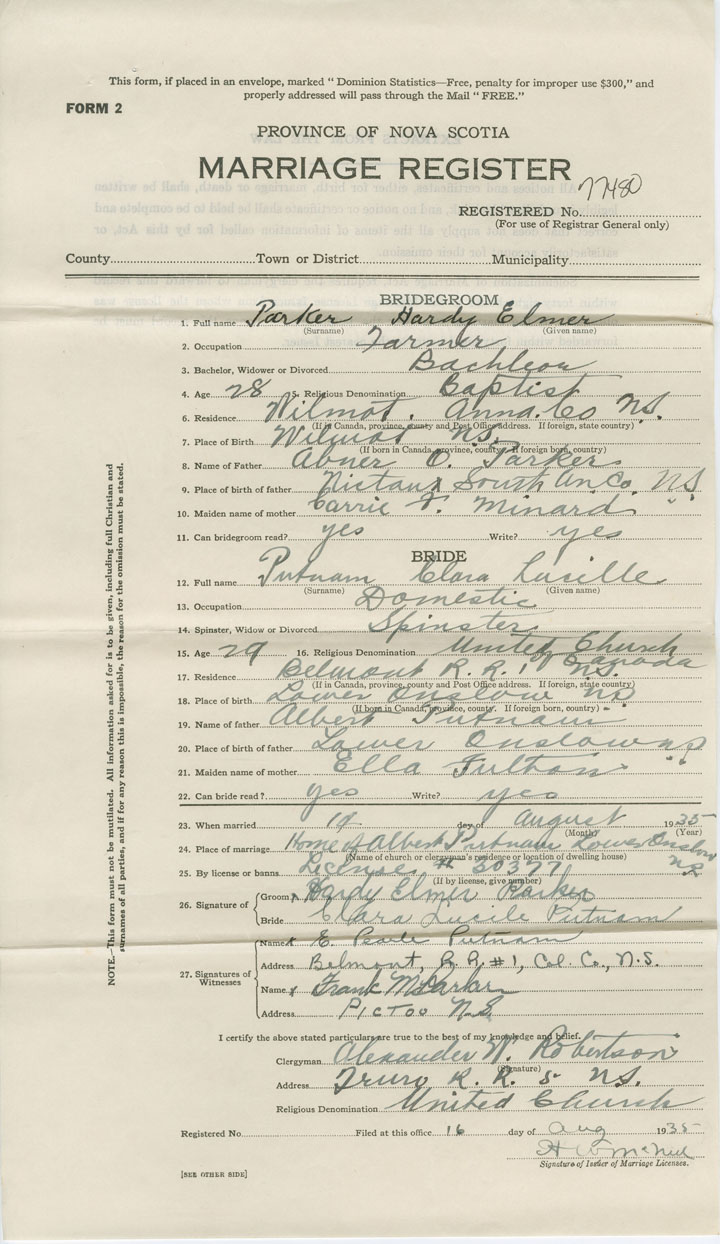 This form, if placed in an envelope, marked " Dominion Statistics—Free, penalty for improper use $300," and
properly addressed will pass through the Mail " FREE."
FORM 2
PROVINCE OF NOVA SCOTIA
MARRIAGE REGISTER
77480
REGISTERED No.
(For use of Registrar General only)
County Town or District Municipality
BRIDEGROOM
1. Full name Parker Hardy Elmer
(Surname) (Given name)
2. Occupation Farmer
3. Bachelor, Widower or Divorced Bachleou
4. Age 28 5. Religious Denomination Baptist
6. Residence Wilmot. Anna. Co N.S.
(If in Canada, province, county and Post Office address. If foreign, state country)
7. Place of Birth Wilmot N.S.
(If born in Canada, province, county. If foreign born, country)
8. Name of Father Abner O. Parker
9. Place of birth of father Nictaux South An. Co. N S
10. Maiden name of mother Carrie F. Minard " "
11. Can bridegroom read? yes Write? yes
BRIDE
12. Full name Putnam Clara Lucille
(Surname) (Given name)
13. Occupation Domestic
14. Spinster, Widow or Divorced Spinster
15. Age 29 16. Religious Denomination United Church of Canada
17. Residence Belmont R. R. 1 N.S.
(If in Canada, province, county and Post Office address. If foreign, state country)
18. Place of birth Lower Onslow N S
(If born in Canada, province, county. If foreign born, country)
19. Name of father Albert Putnam
20. Place of birth of father Lower Onslow N S
21. Maiden name of mother Ella Fulton
22. Can bride read? yes Write? yes
23. When married 19 day of August 1935
(Month) (Year)
24. Place of marriage Home of Albert Putnam Lower Onslow N S
(Name of church or clergyman's residence or location of dwelling house)
25. By license or banns License # 50377
(If by license, give number)
26. Signature of Groom Hardy Elmer Parker
Bride Clara Lucile Putnam
27. Signatures of Witnesses
Name E. Putnam
Address Belmont, R. R. #1, Col. Co., N.S.
Name Frank M Parker
Address Pictou N.S.
I certify the above stated particulars are true to the best of my knowledge and belief.
Clergyman Alexander W. Robertson
(Signature)
Address Truro R. R. 5 N.S.
Religious Denomination United Church
Registered No. Filed at this office 16 day of Aug 1935
H W McNeil
Signature of Issuer of Marriage Licenses.
[SEE OTHER SIDE]
NOTE.—This form must not be mutilated. All information asked for is to be given, including full Christian and
surnames of all parties, and if for any reason this is impossible, the reason for the omission must be stated.